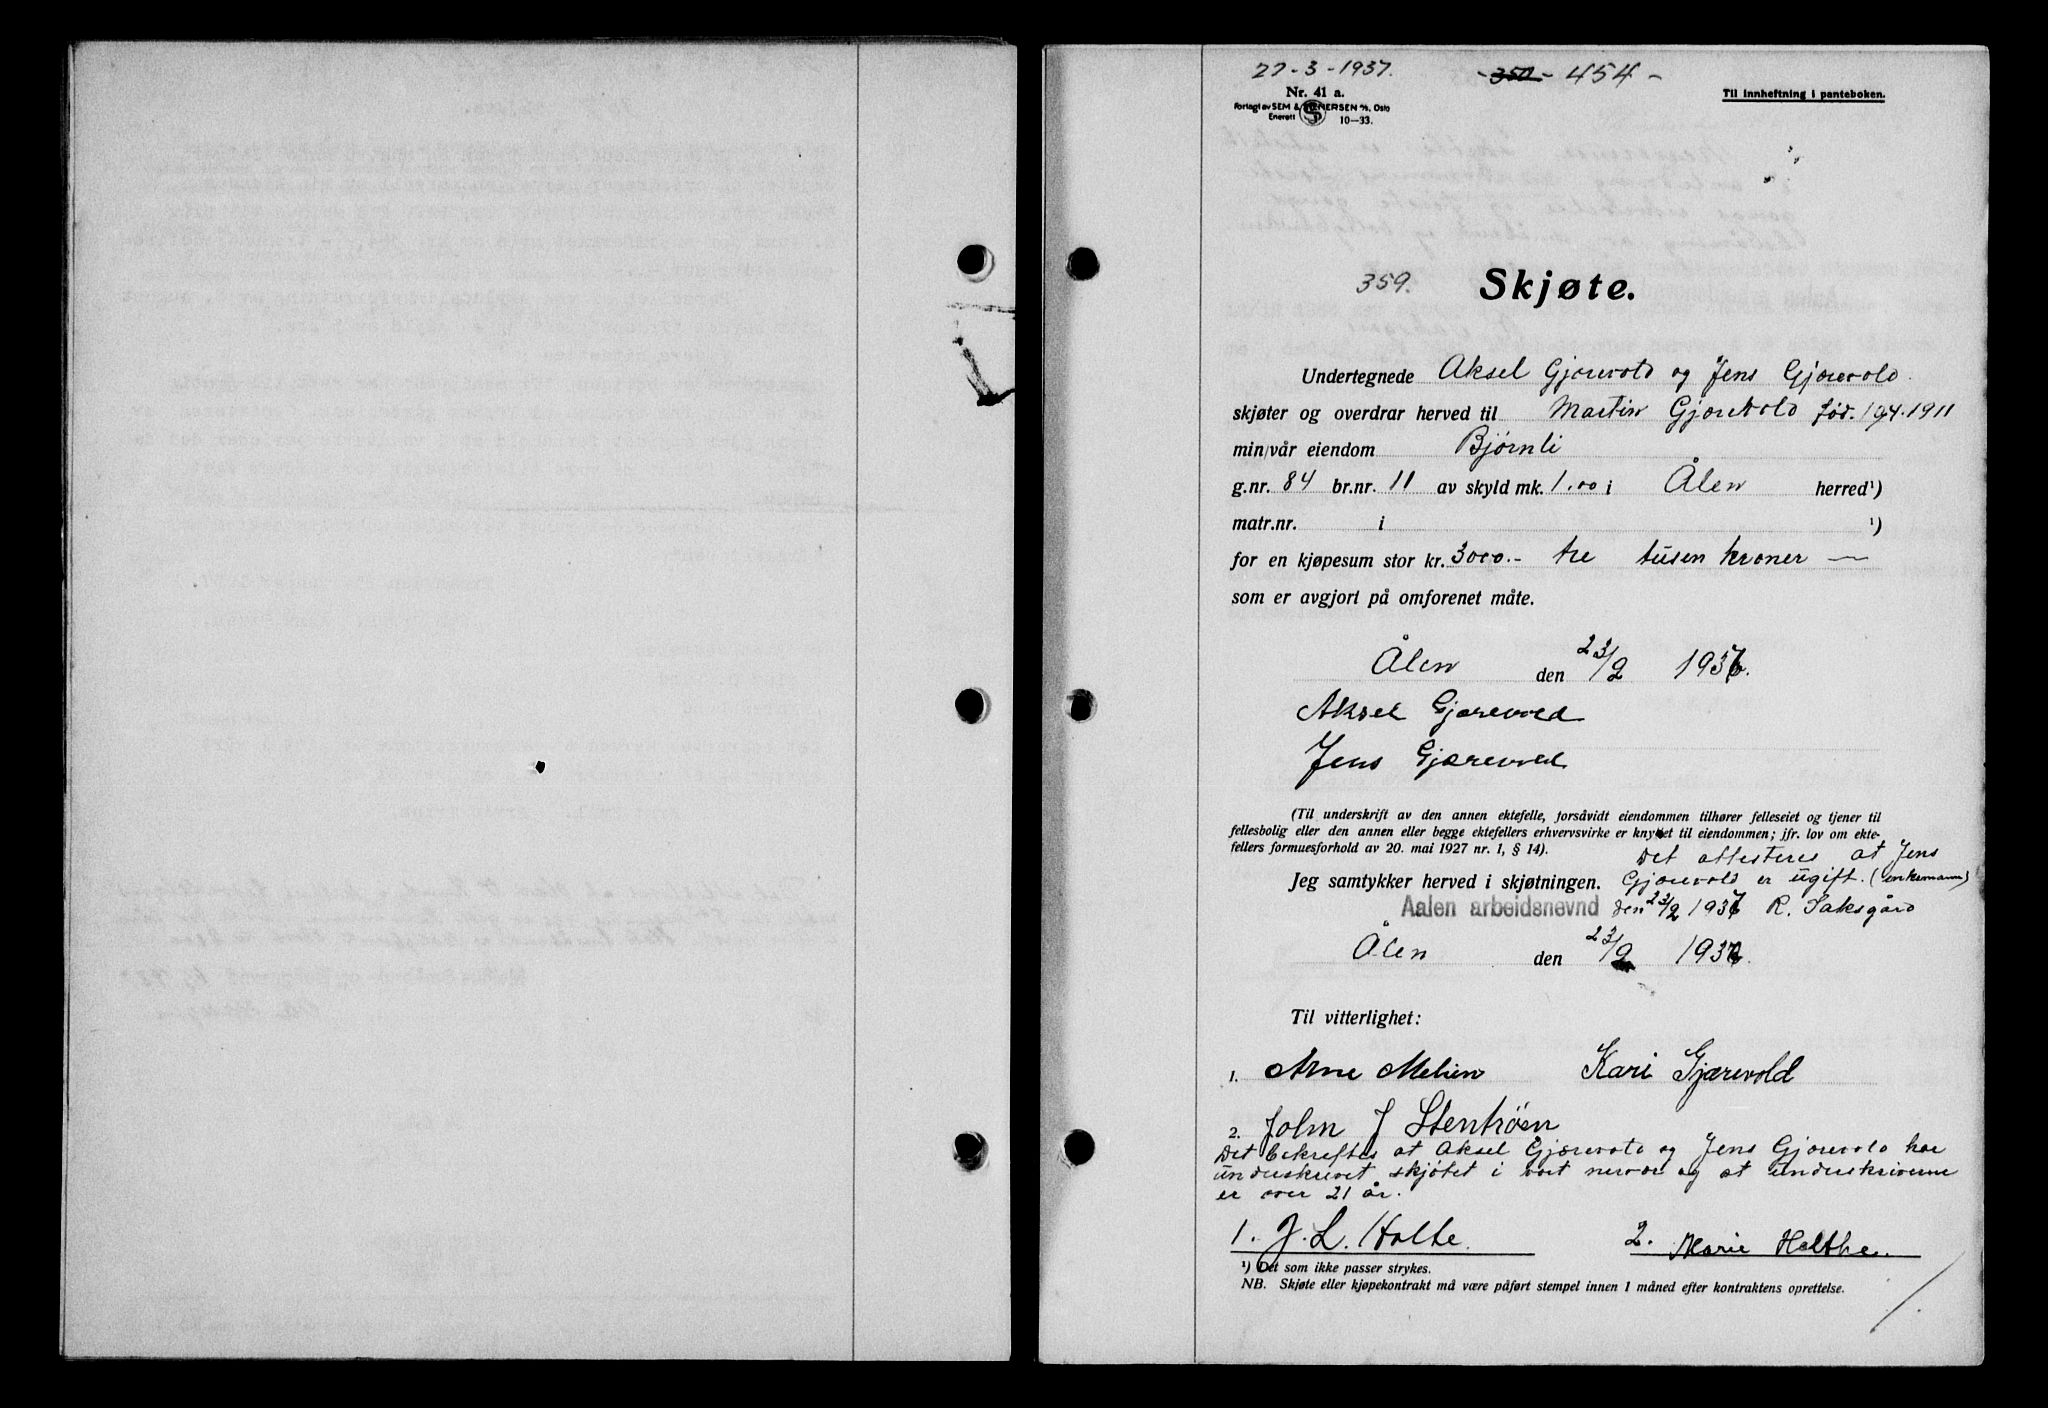 22-3-1937.
-350- 454-
Nr. 41 a.
Forlagt av SEM & STENERSEN A/S, Oslo
Enerett
10—33.
Til innheftning i panteboken.
359. Skjøte.
Undertegnede Aksel Gjærevold og Jens Gjærevold
skjøter og overdrar herved til Martin Gjærevold fød. 19/4-1911
min/vår eiendom Bjørnli
g.nr. 84 br.nr. 11 av skyld mk. 1.00 i Ålen herred¹)
matr.nr. i ¹)
for en kjøpesum stor kr. 3000.- tre tusen kroner —
som er avgjort på omforenet måte.
Ålen den 23/2 1937.
Aksel Gjærevold
Jens Gjærevold
(Til underskrift av den annen ektefelle, forsåvidt eiendommen tilhører felleseiet og tjener til
fellesbolig eller den annen eller begge ektefellers erhvervsvirke er knyttet til eiendommen; jfr. lov om ekte-
fellers formuesforhold av 20. mai 1927 nr. 1, § 14).
Det attesteres at Jens
Jeg samtykker herved i skjøtningen. Gjærevold er ugift. (enkemann)
Aalen arbeidsnevnd den 23/2 1937 R. Saksgård
Ålen den 23/2 1937.
Til vitterlighet:
1. Arne Melien Kari Gjærevold
2. John J Stentrøen
Det bekreftes at Aksel Gjærevold og Jens Gjærevold har
underskrevet skjøtet i vort nervær og at underskriverne
er over 21 år.
1. J. L. Holte. 2. Marie Holthe.
¹) Det som ikke passer strykes.
NB. Skjøte eller kjøpekontrakt må være påført stempel innen 1 måned efter kontraktens oprettelse.